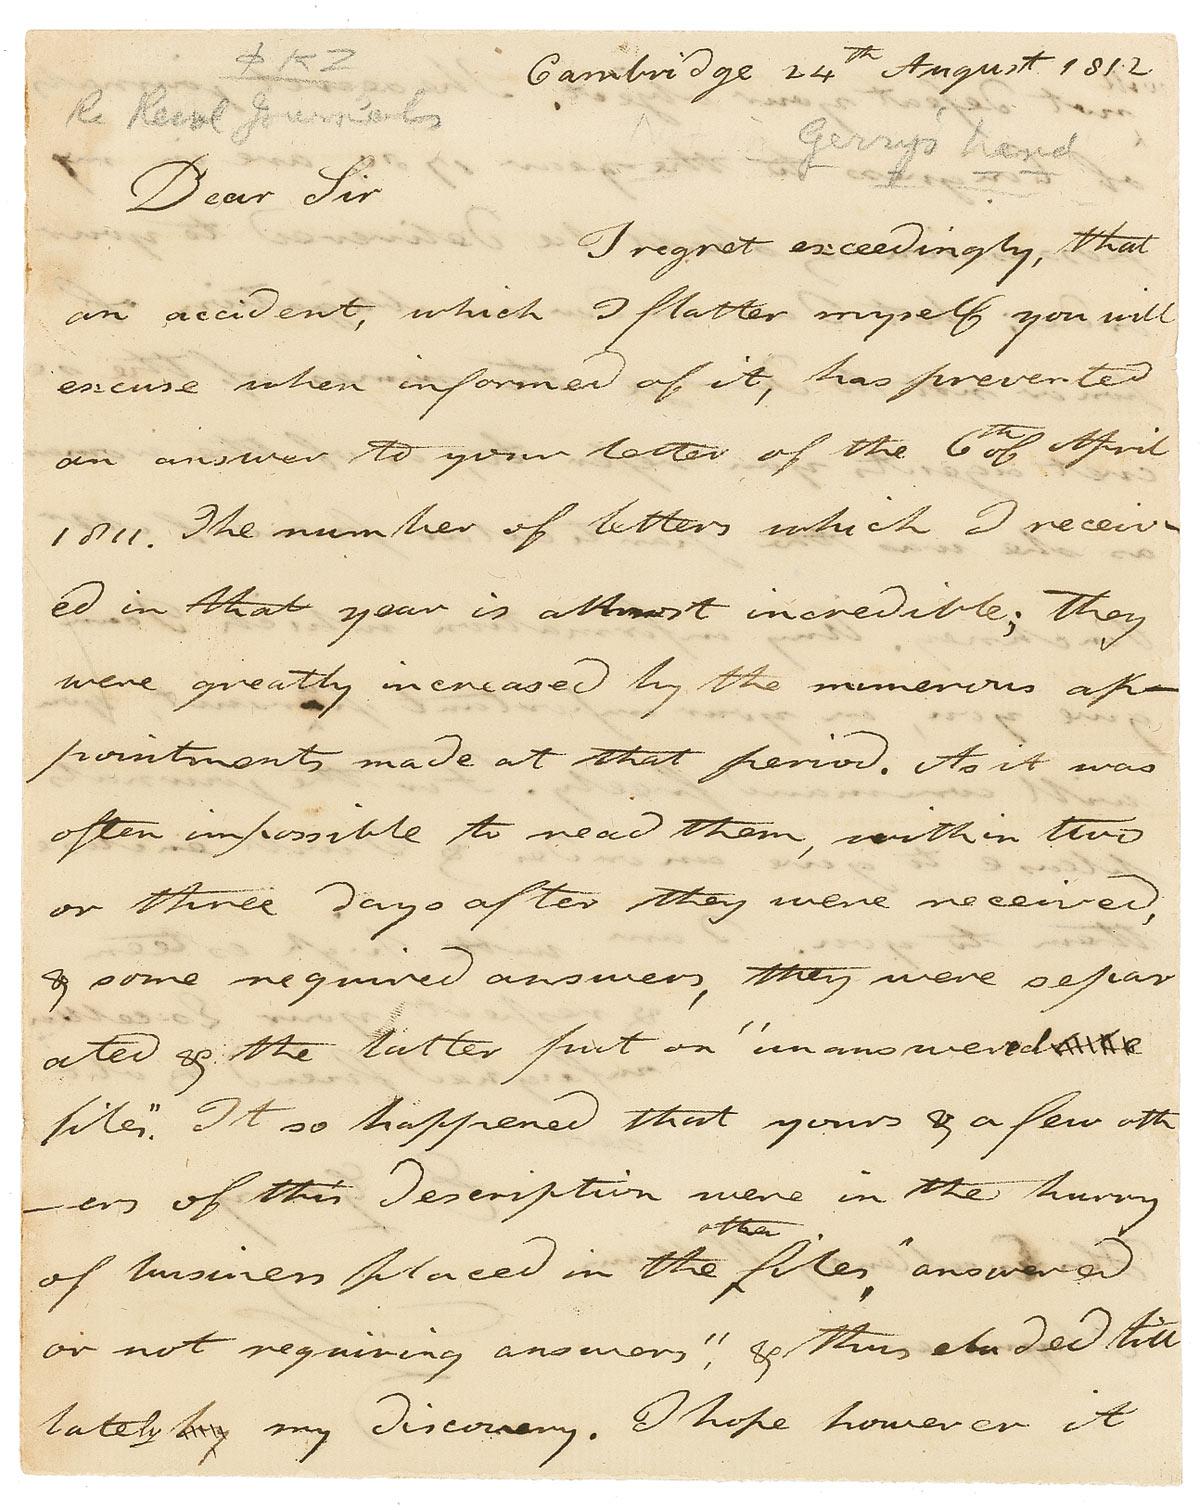 Cambridge 24th August 1812
Re Revol Journals
Gerry's hand
Dear Sir
I regret exceedingly, that
an accident, which I flatter myself you will
excuse when informed of it, has prevented
an answer to your letter of the 6th of April
1811. The number of letters which I receiv-
ed in that year is almost incredible; They
were greatly increased by the numerous ap-
pointments made at that period. As it was
often impossible to read them, within two
or three days after they were received,
& some required answers, they were separ
ated & the latter put on "unanswered
files". It so happened that yours & a few oth
-ers of this description were in the hurry
of business placed in the other files, "answered
or not requiring answers", & thus eluded till
lately by my discovery. I hope however it